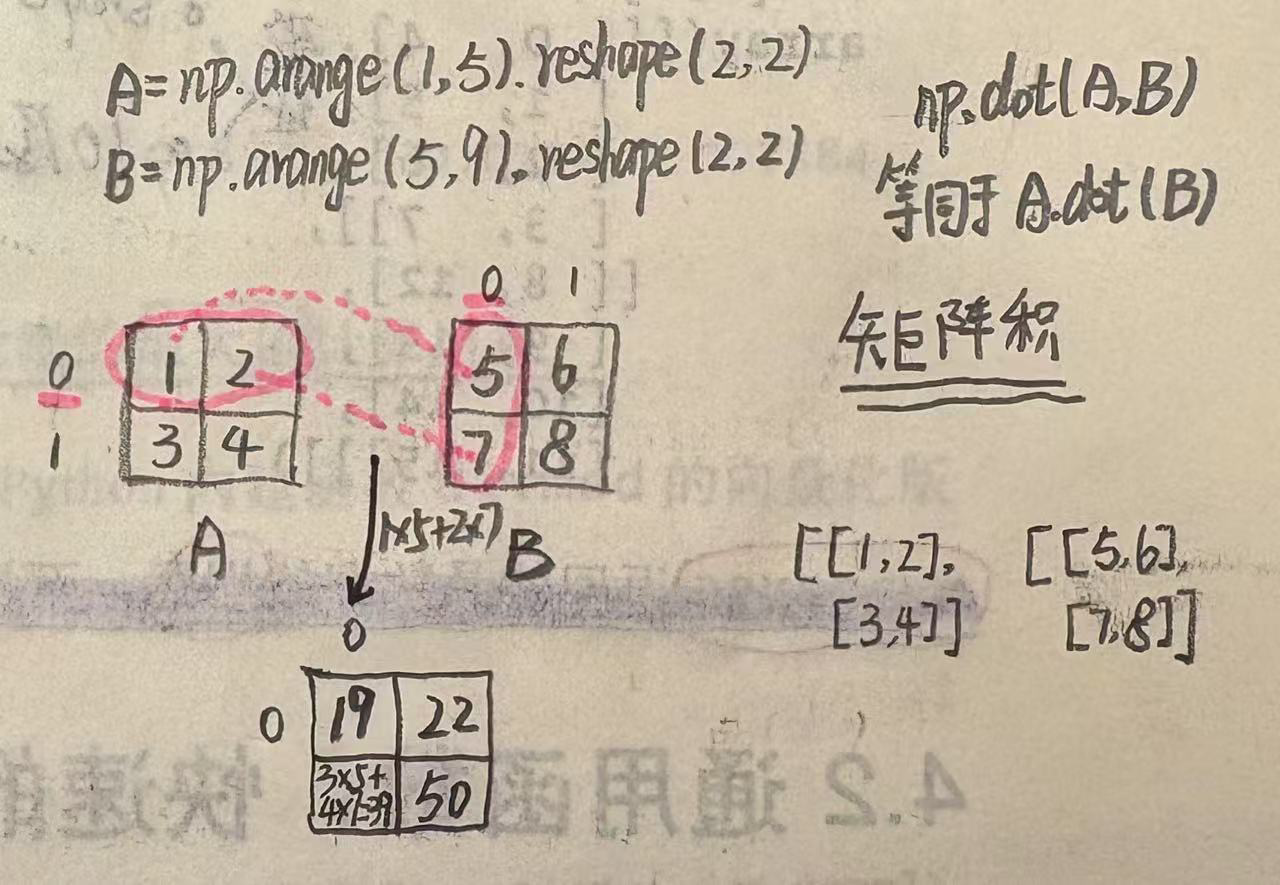 A=np.arange(1,5).reshape(2,2)
B=np.arange(5,9).reshape(2,2)
np.dot(A,B)
等同于 A.dot(B)
矩阵积
0 1
0 1 2 5 6
1 3 4 7 8
A B
1×5+2×7
[[1,2], [[5,6],
[3,4]] [7,8]]
0
0 19 22
3×5+ 50
4×7=39
4.2 通用函 快速的